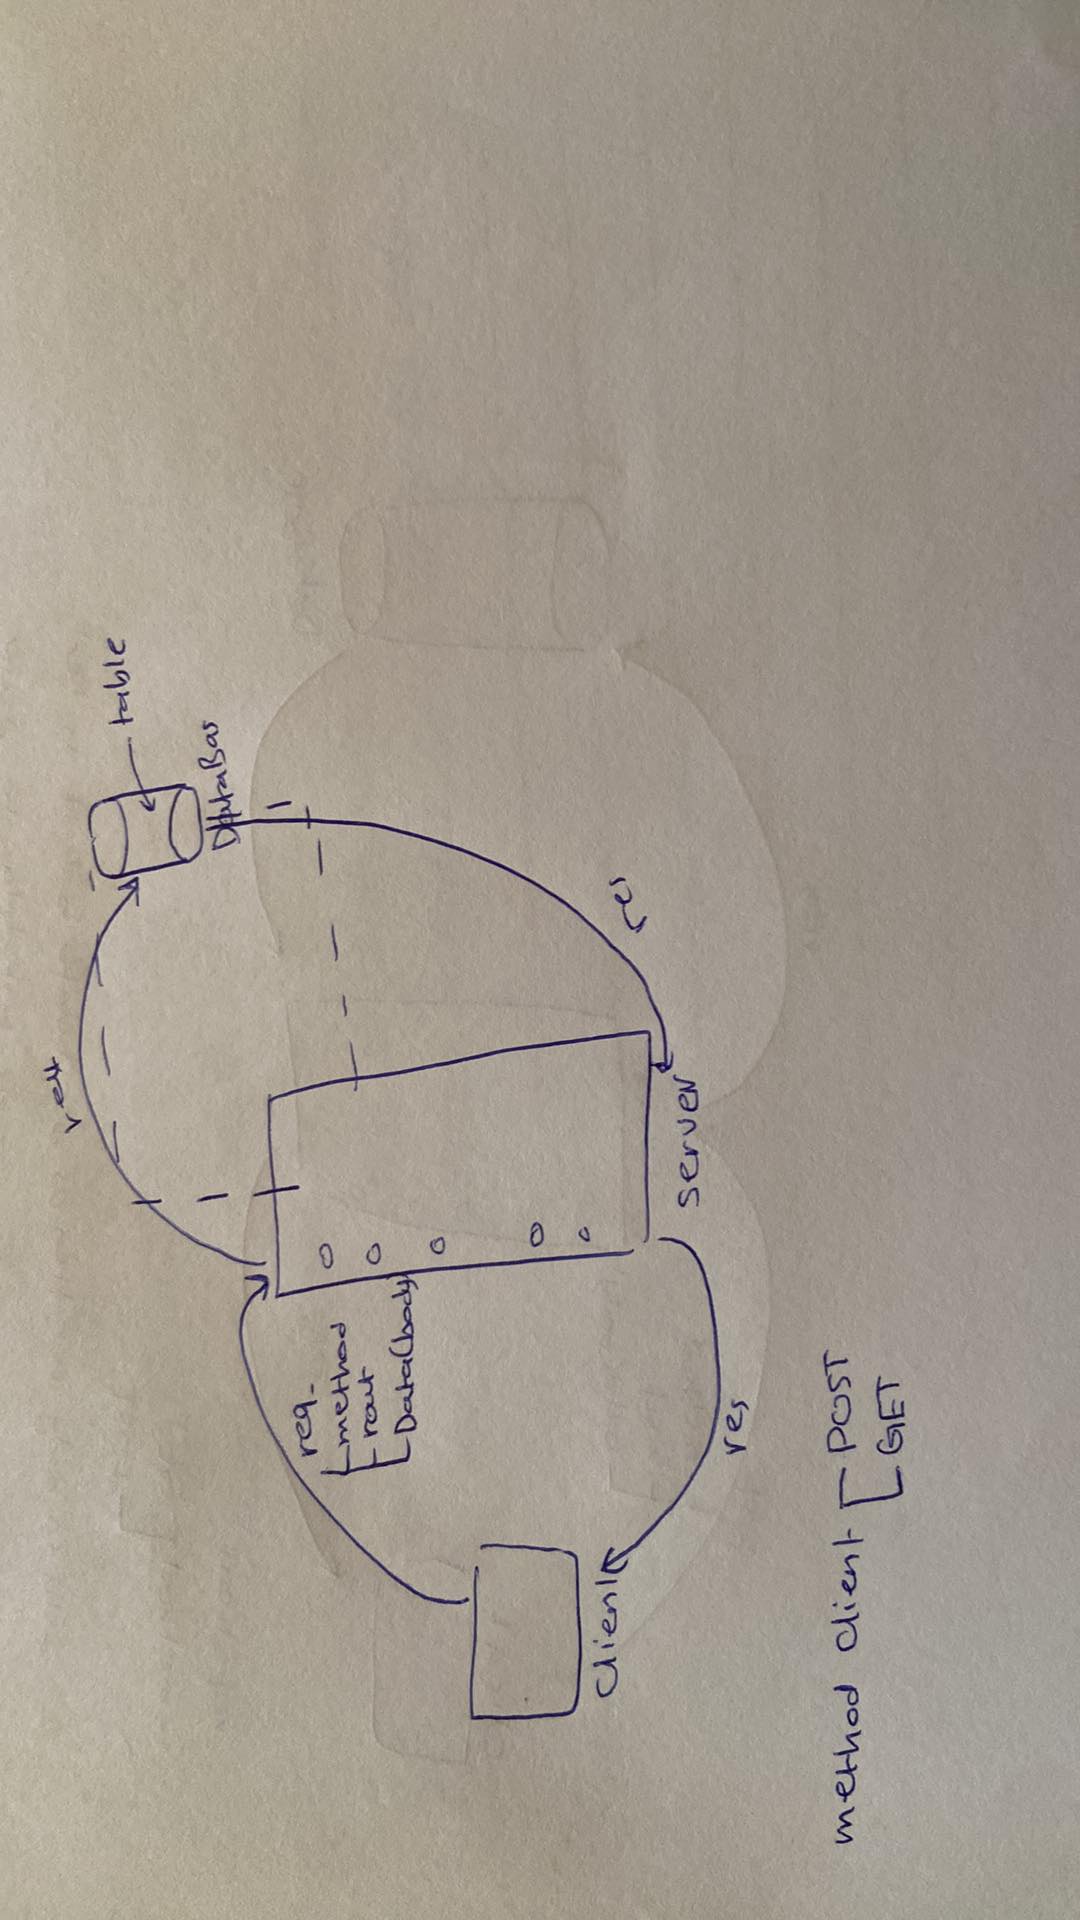 table
DataBas
req
method
rout
Data(body)
client
res
server
res
method client
POST
GET